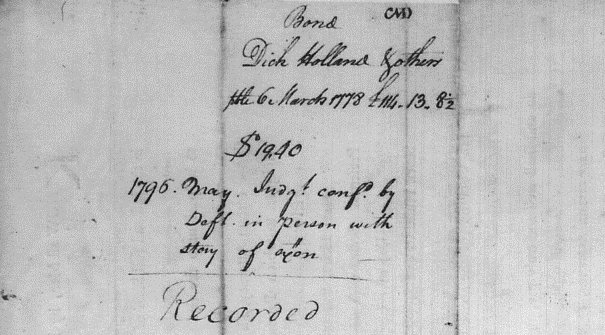 Bond
(M)
Dick Holland & others
6 March 1778 £114-13-8½
$19.40
1796. May. Judgt. confd. by
Deft. in person with
stay of
Recorded